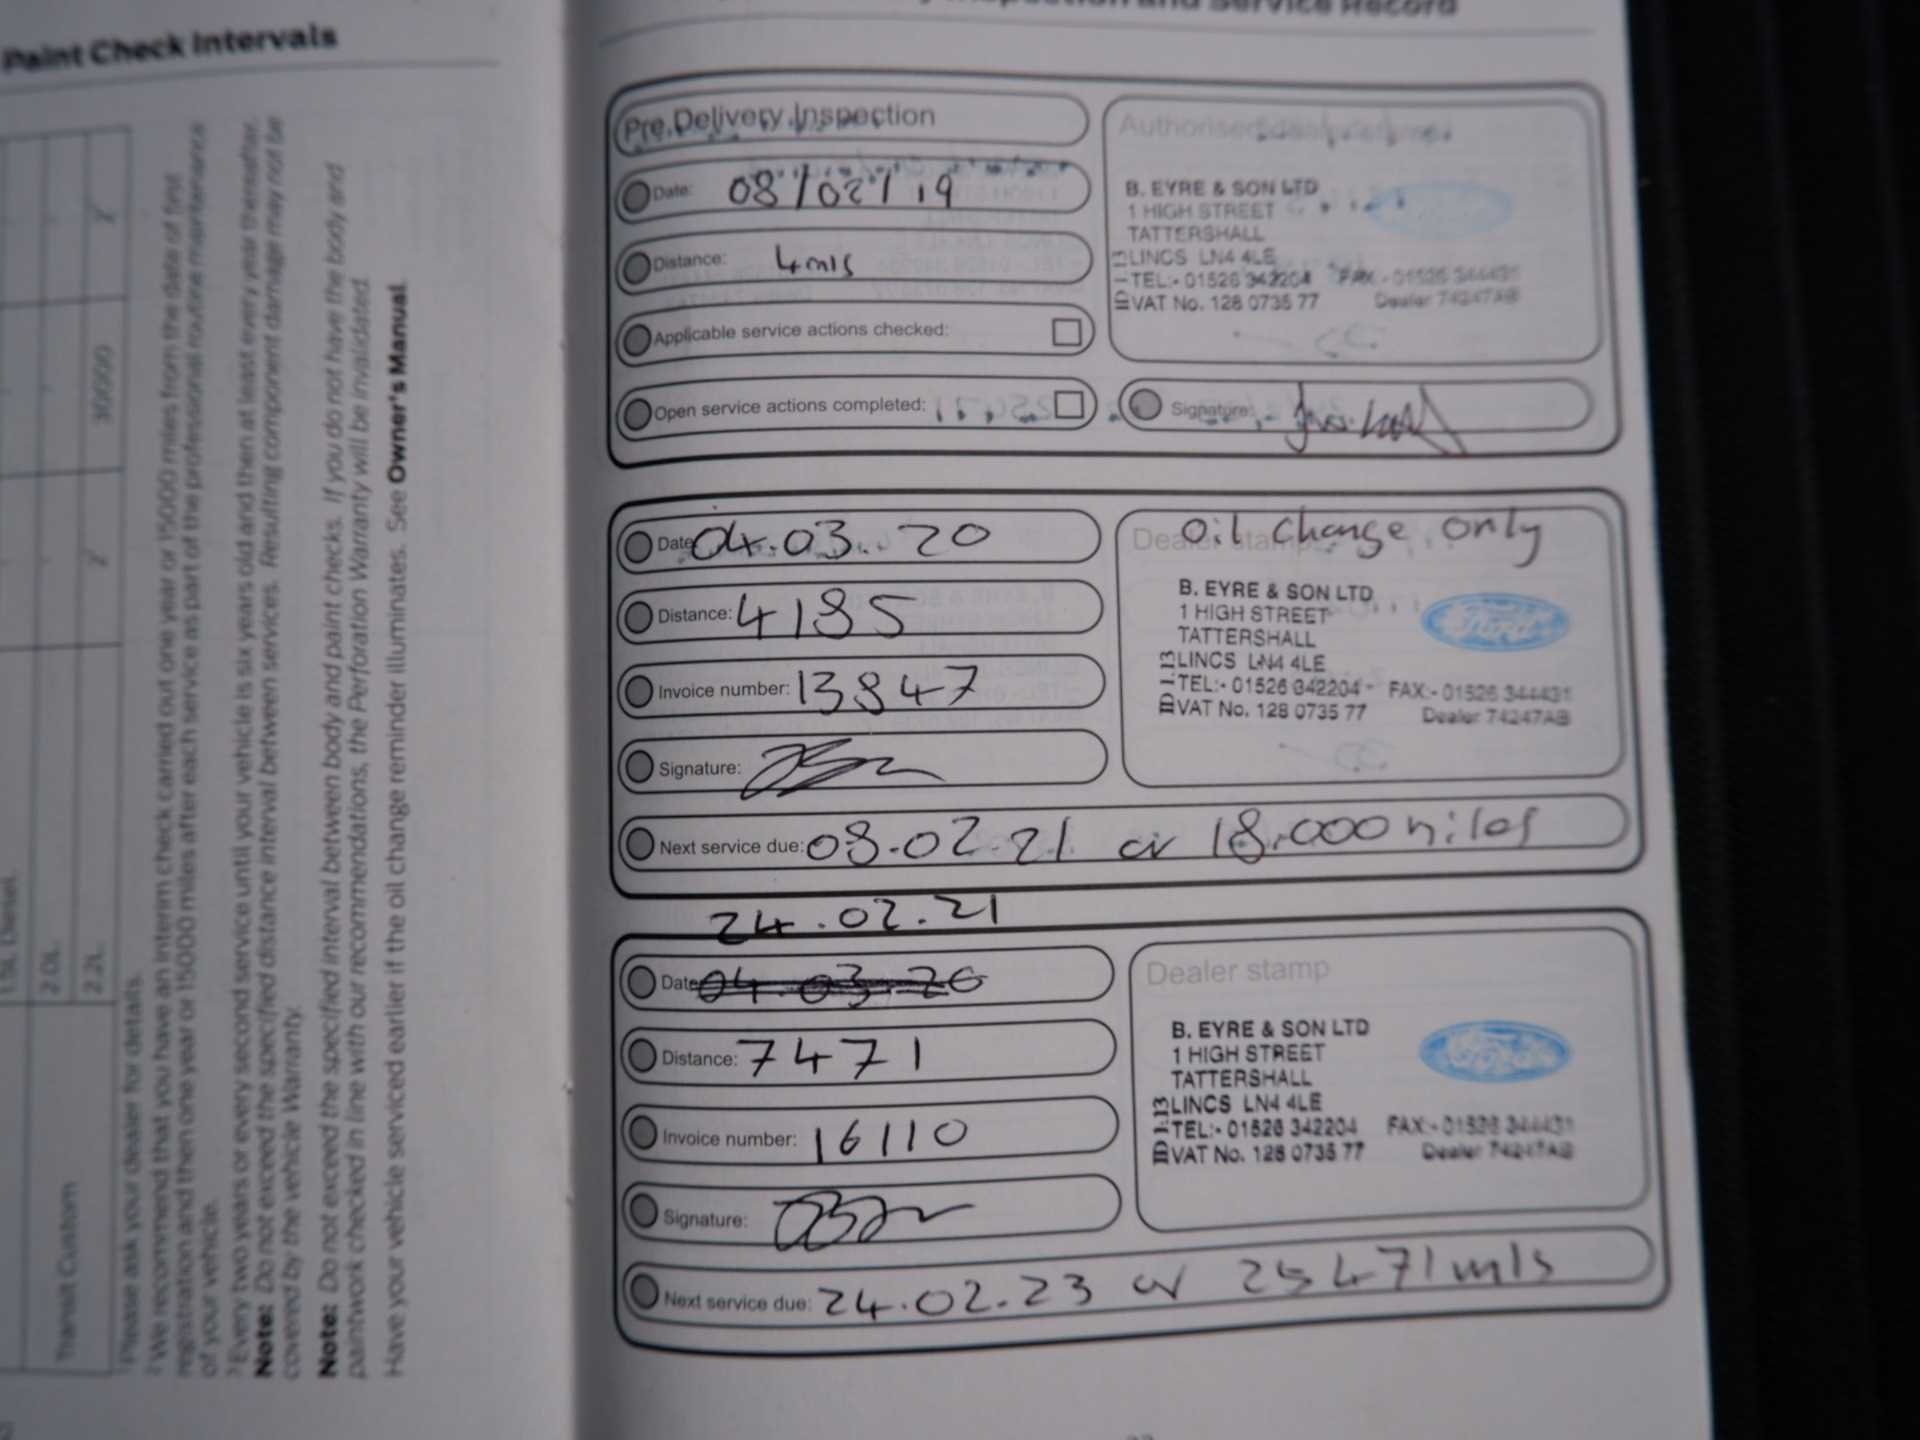 Paint Check Intervals
1.5L Diesel
Transit Custom
2.0L
2.2L
30000
Please ask your dealer for details.
We recommend that you have an interim check carried out one year or 15000 miles from the date of first
registration and then one year or 15000 miles after each service as part of the professional routine maintenance
of your vehicle.
Every two years or every second service until your vehicle is six years old and then at least every year thereafter.
Note: Do not exceed the specified distance interval between services. Resulting component damage may not be
covered by the vehicle Warranty.
Note: Do not exceed the specified interval between body and paint checks. If you do not have the body and
paintwork checked in line with our recommendations, the Perforation Warranty will be invalidated.
Have your vehicle serviced earlier if the oil change reminder illuminates. See Owner's Manual.
Inspection and Service Record
Pre Delivery Inspection
Date: 08/02/19
Distance: 4mls
Applicable service actions checked:
Open service actions completed:
Authorised dealer stamp
B. EYRE & SON LTD
1 HIGH STREET
TATTERSHALL
LINCS LN4 4LE
TEL:- 01526 342204 FAX:- 01526 344431
VAT No. 128 0735 77 Dealer 74247AB
Signature:
Date: 04.03.20
Distance: 4185
Invoice number: 13847
Signature:
Next service due: 08.02.21 or 18,000 miles
Oil change only
Dealer stamp
B. EYRE & SON LTD
1 HIGH STREET
TATTERSHALL
LINCS LN4 4LE
TEL:- 01526 342204 - FAX:- 01526 344431
VAT No. 128 0735 77 Dealer 74247AB
Ford
24.02.21
Date: 04.03.20
Distance: 7471
Invoice number: 16110
Signature:
Next service due: 24.02.23 or 25471 mls
Dealer stamp
B. EYRE & SON LTD
1 HIGH STREET
TATTERSHALL
LINCS LN4 4LE
TEL:- 01526 342204 FAX:- 01526 344431
VAT No. 128 0735 77 Dealer 74247AB
Ford